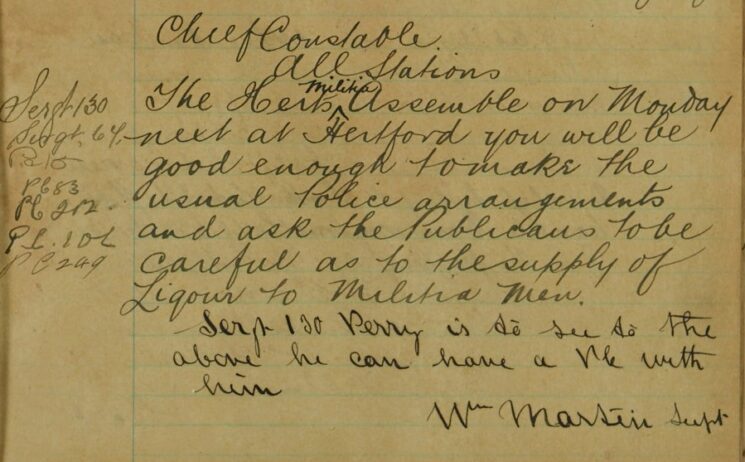 Chief Constable.
All Stations
The Herts Militia Assemble on Monday
next at Hertford you will be
good enough to make the
usual Police arrangements
and ask the Publicans to be
careful as to the supply of
Liqour to Militia Men.
Sergt 130 Perry is to see to the
above he can have a Pc with
him
Wm Martin Supt
Sergt 130
Sergt. 64.
PC 83
PC 212.
P.C. 102
PC 249